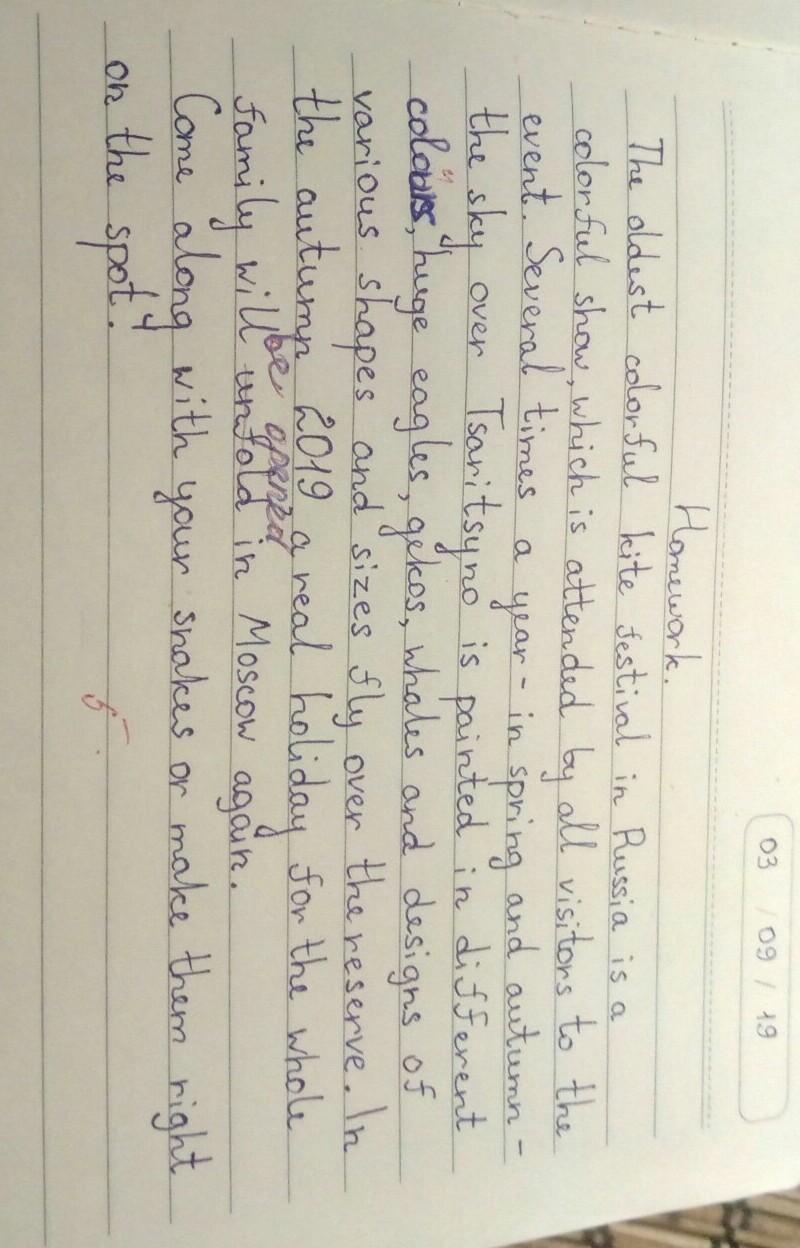 03 / 09 / 19
Homework.
The oldest colorful kite festival in Russia is a
colorful show, which is attended by all visitors to the
event. Several times a year - in spring and autumn -
the sky over Tsaritsyno is painted in different
colours, huge eagles, gekos, whales and designs of
various shapes and sizes fly over the reserve. In
the autumn 2019 a real holiday for the whole
be opened
family will unfold in Moscow again.
Come along with your snakes or make them right
on the spot.
5-